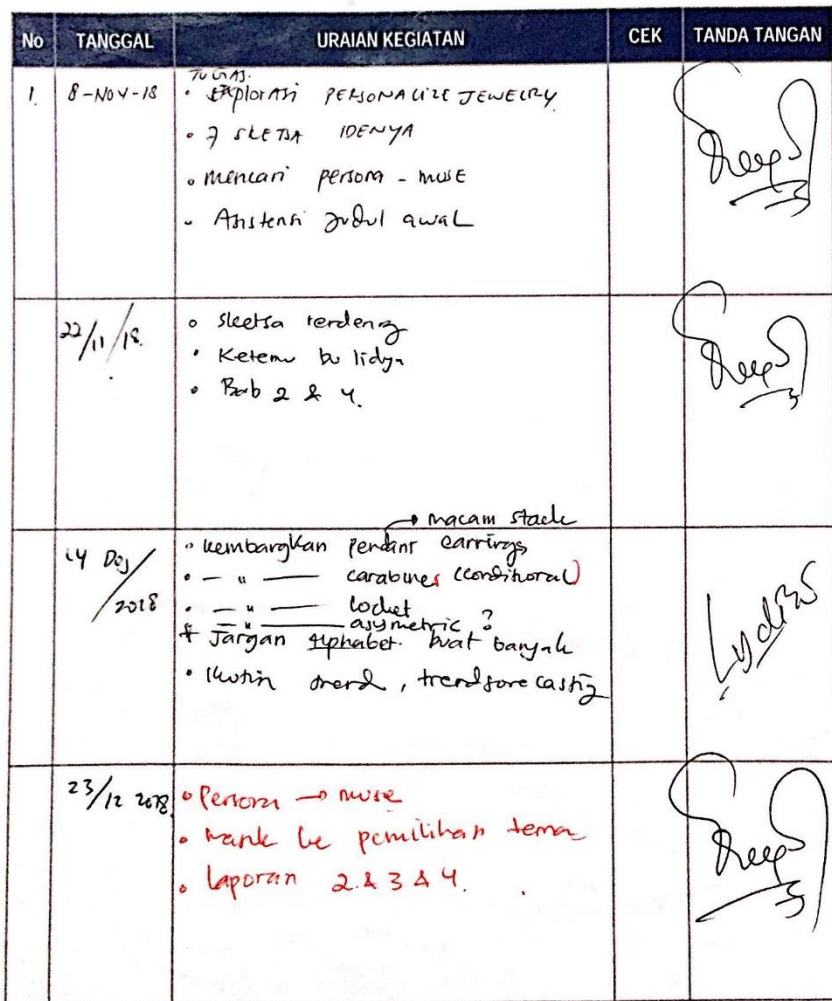 No TANGGAL URAIAN KEGIATAN CEK TANDA TANGAN
TUGAS.
1. 8-NOV-18 • EXPLORASI PERSONALIZE JEWELRY
• 7 SKETSA IDENYA
• mencari persona - muse
• Asistensi Judul awal
22/11/18. • Sketsa
• Ketemu bu lidya
• Bab 2 & 4.
→ macam
14 Des/2018 • kembangkan pendant earrings
• — " — carabiner (conditional)
• — " — locket
— " — asymetric ?
* Jangan alphabet. buat banyak
• trend, trendforecasting
Lydia
23/12 2018 • Persona → muse
• ke pemilihan tema
• Laporan 2 & 3 & 4.